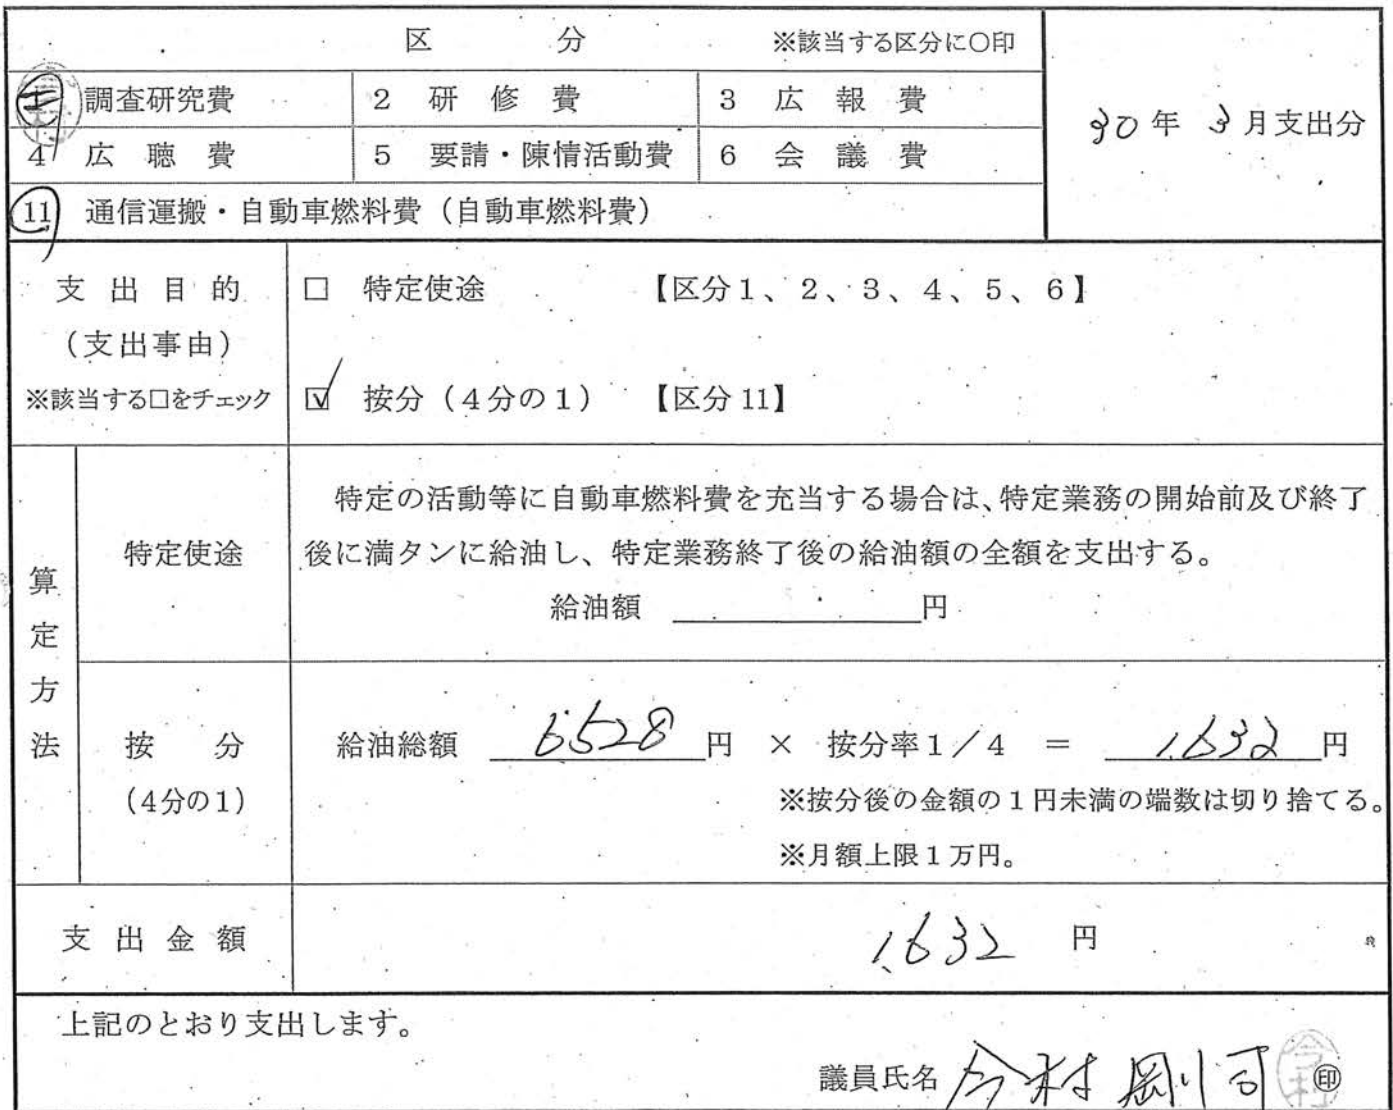 区 分 ※該当する区分に○印
30年 3月支出分
1 調査研究費 2 研修費 3 広報費
4 広聴費 5 要請・陳情活動費 6 会議費
11 通信運搬・自動車燃料費（自動車燃料費）
支出目的
（支出事由）
※該当する□をチェック
□ 特定使途 【区分1、2、3、4、5、6】
☑ 按分（4分の1） 【区分11】
算定方法
特定使途
特定の活動等に自動車燃料費を充当する場合は、特定業務の開始前及び終了
後に満タンに給油し、特定業務終了後の給油額の全額を支出する。
給油額 円
按分
（4分の1）
給油総額 6528 円 × 按分率1／4 ＝ 1,632 円
※按分後の金額の1円未満の端数は切り捨てる。
※月額上限1万円。
支出金額 1,632 円
上記のとおり支出します。
議員氏名 今村剛司 ㊞
今村